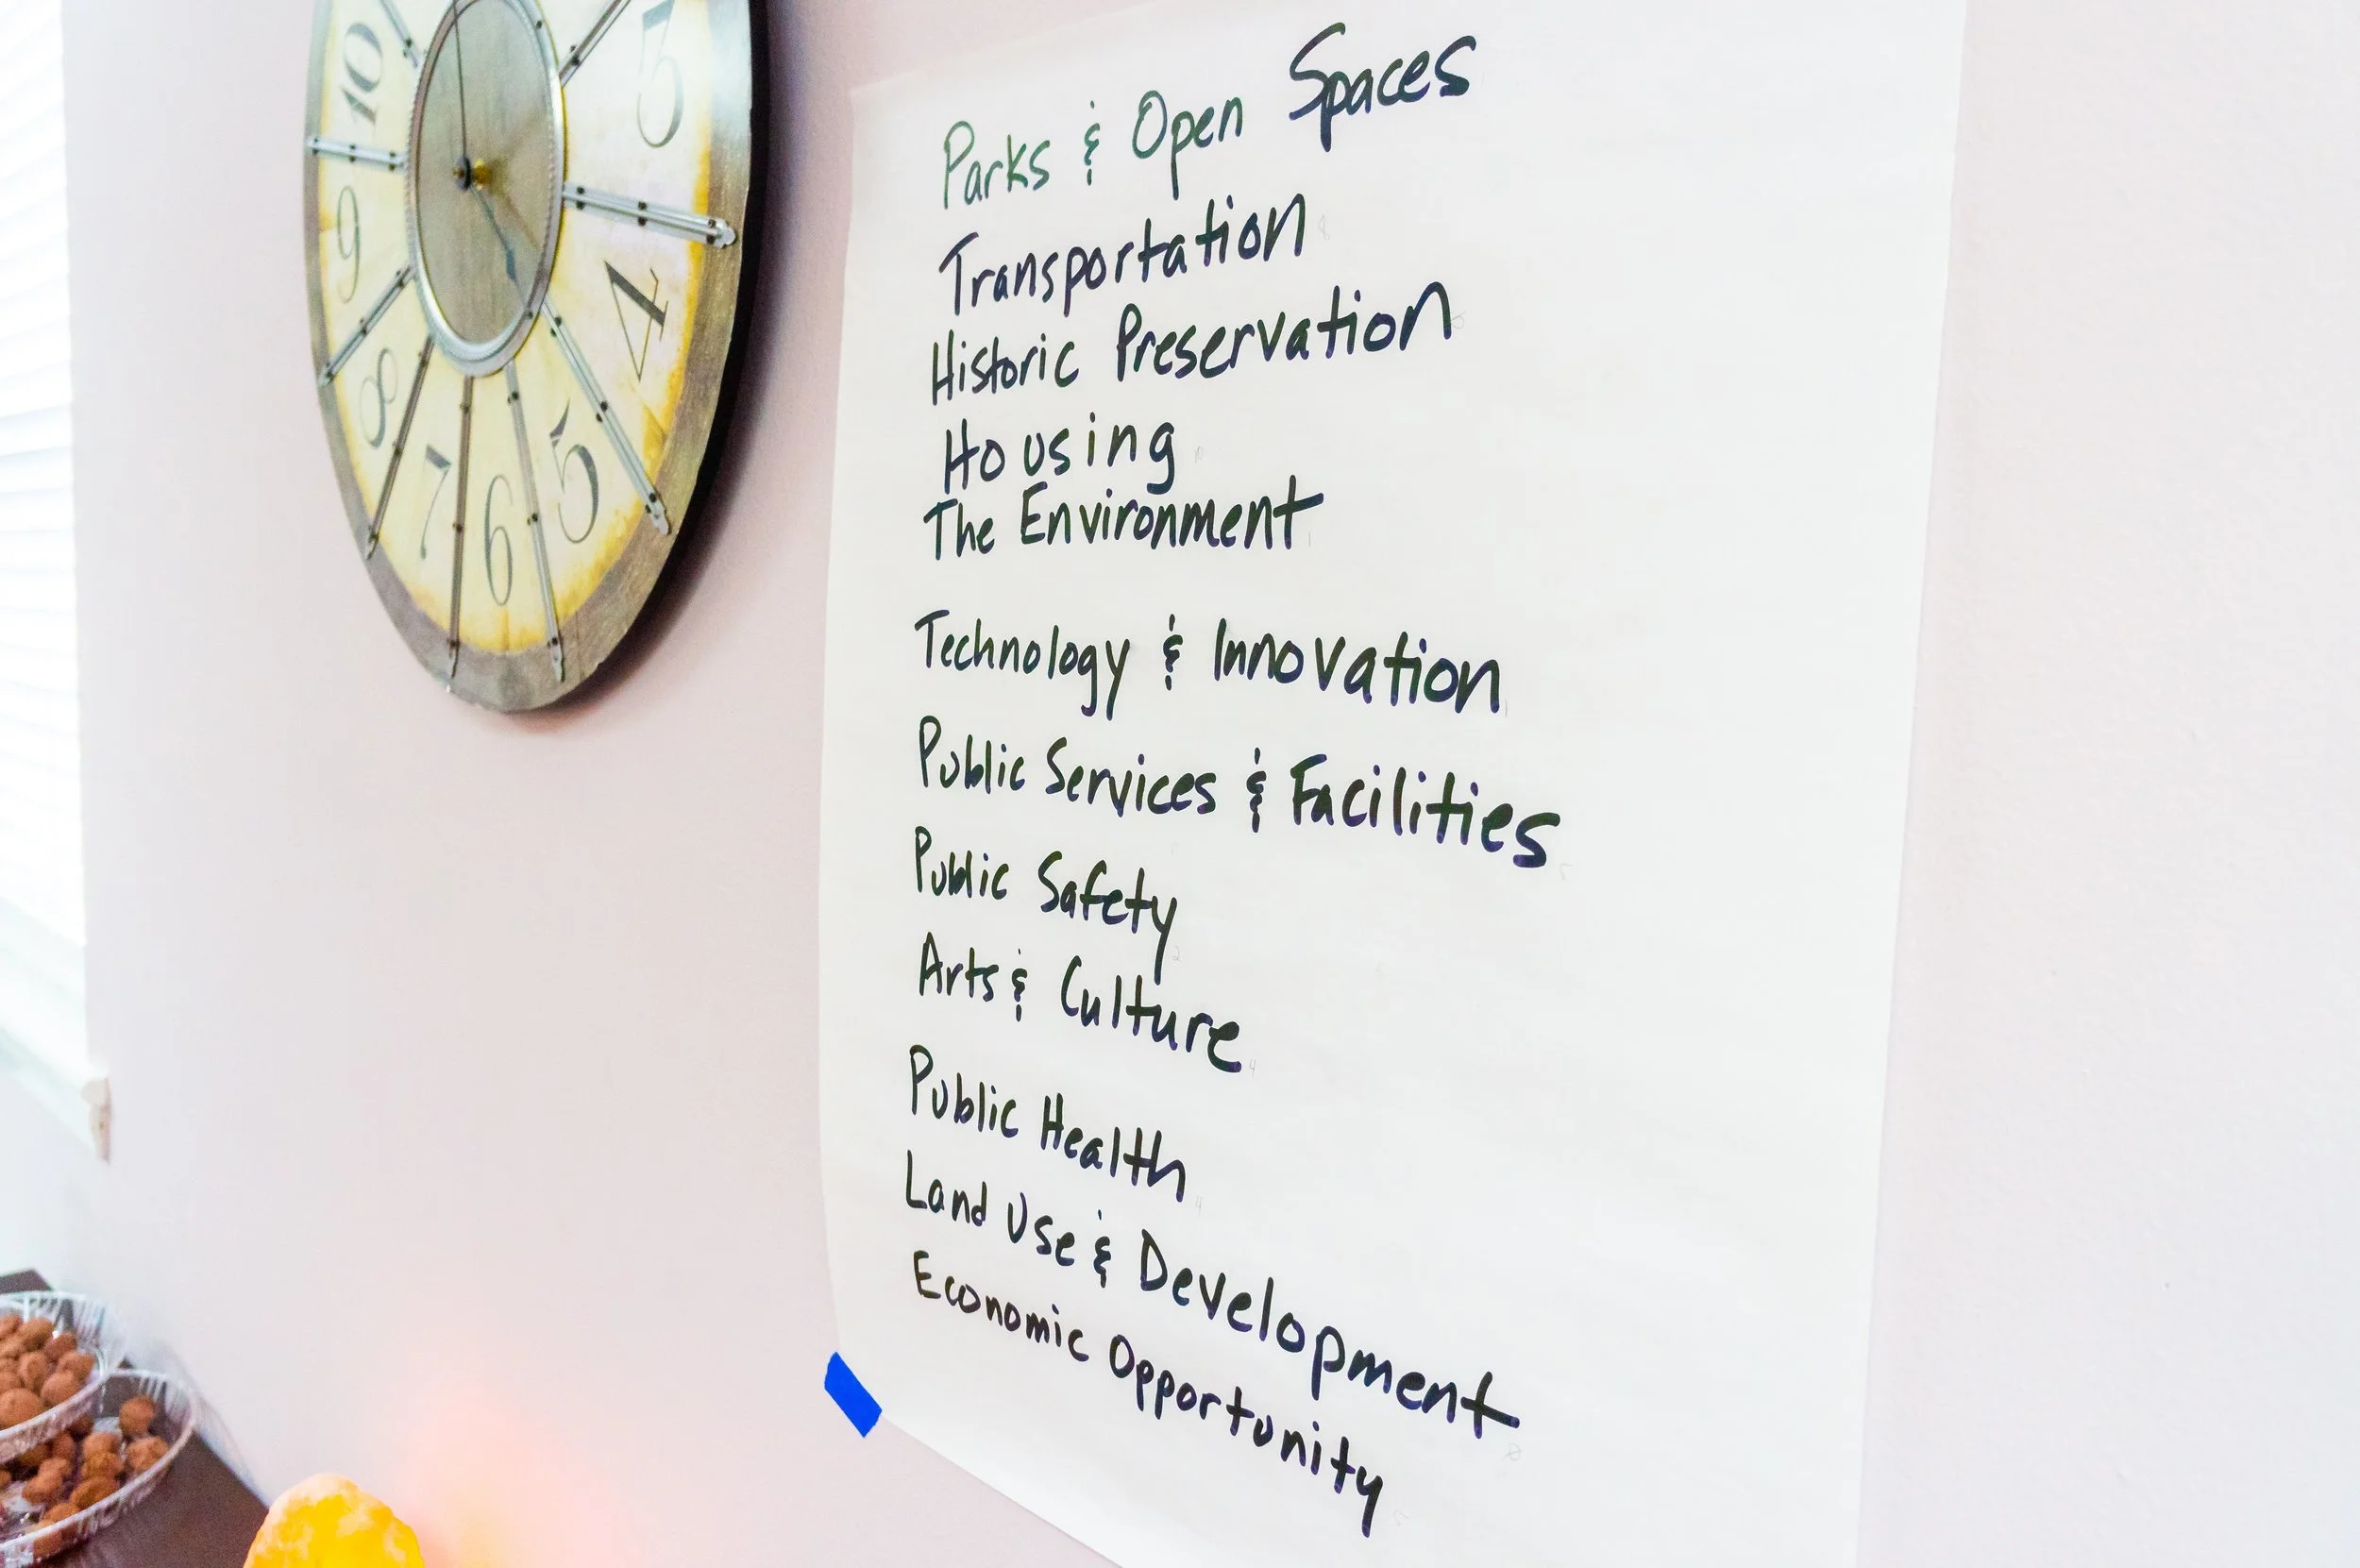 10
9
8
7
6
5
4
3
Parks & Open Spaces
Transportation
Historic Preservation
Housing
The Environment
Technology & Innovation
Public Services & Facilities
Public Safety
Arts & Culture
Public Health
Land Use & Development
Economic Opportunity